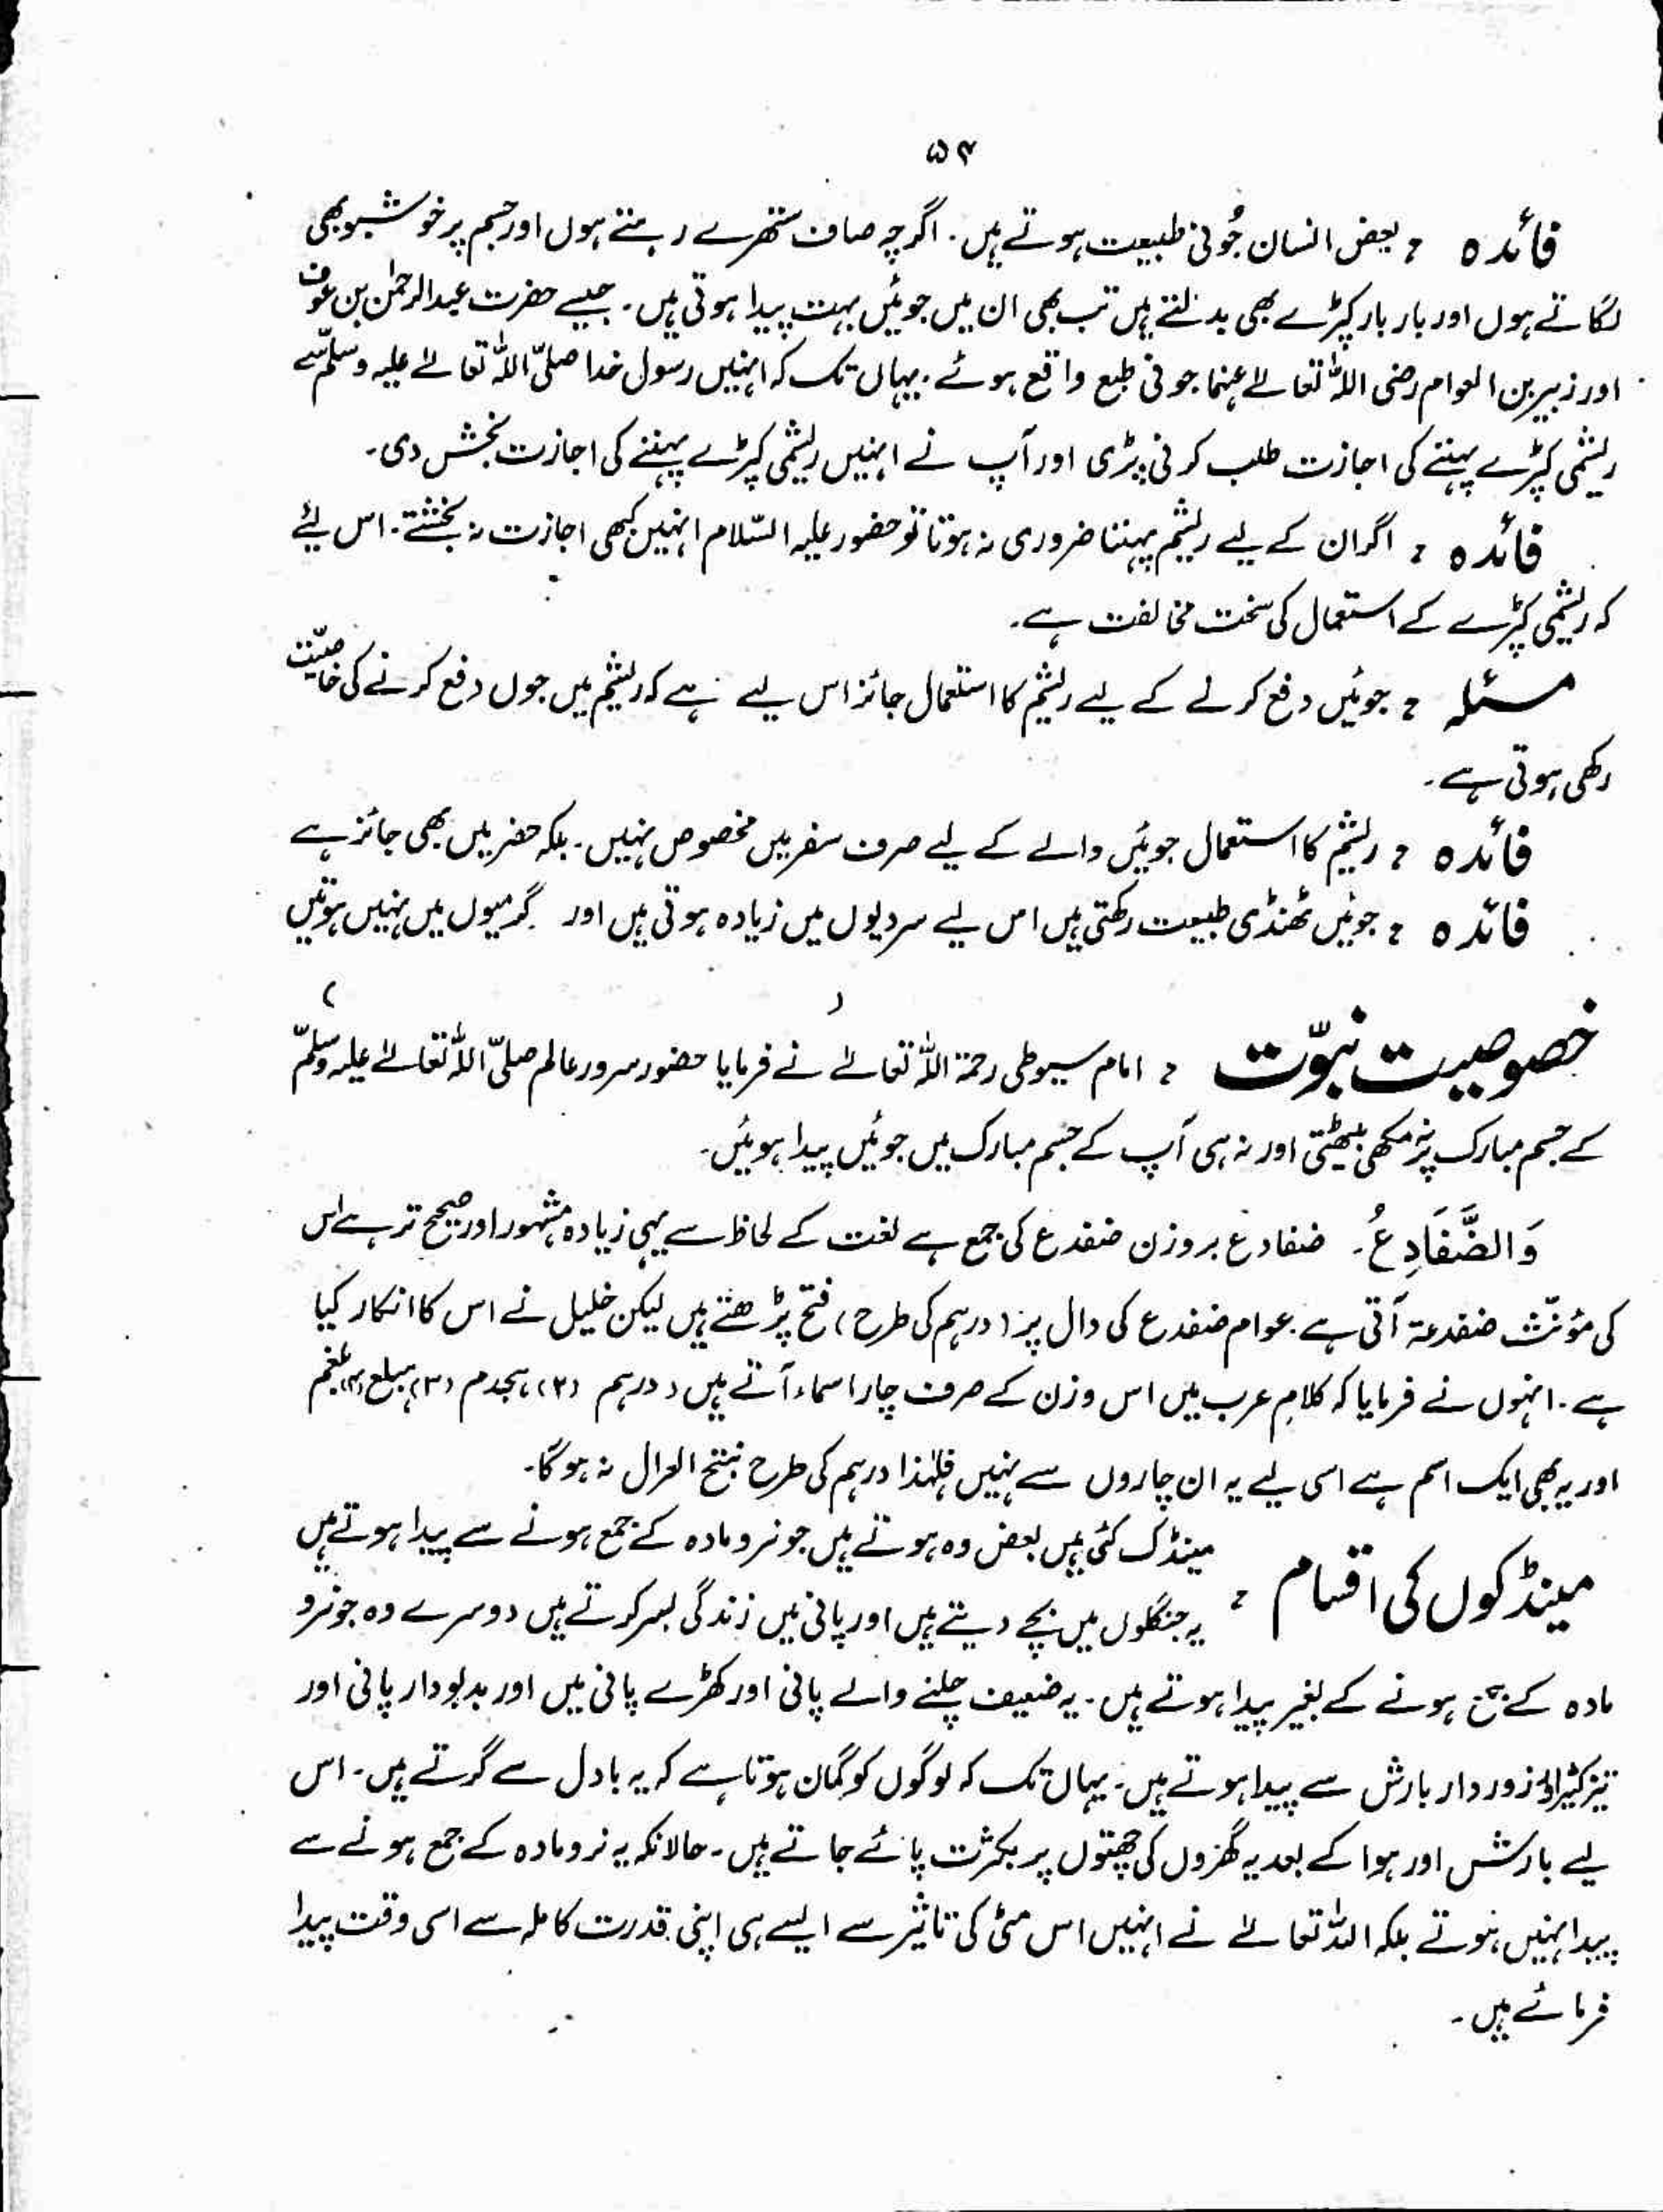 ۵۴
فائدہ : بعض انسان جُوئی طبیعت ہوتے ہیں۔ اگرچہ صاف ستھرے رہتے ہوں اور جسم پر خوشبو بھی
لگاتے ہوں اور بار بار کپڑے بھی بدلتے ہیں تب بھی ان میں جوئیں بہت پیدا ہوتی ہیں۔ جیسے حضرت عبدالرحمٰن بن عوف
اور زبیر بن العوام رضی اللہ تعالےٰ عنہما جوئی طبع واقع ہوئے۔ یہاں تک کہ انہیں رسول خدا صلّی اللہ تعالےٰ علیہ وسلّم سے
ریشمی کپڑے پہننے کی اجازت طلب کرنی پڑی اور آپ نے انہیں ریشمی کپڑے پہننے کی اجازت بخش دی۔
فائدہ : اگر ان کے لیے ریشم پہننا ضروری نہ ہوتا تو حضور علیہ السّلام انہیں کبھی اجازت نہ بخشتے۔ اس لئے
کہ ریشمی کپڑے کے استعمال کی سخت مخالفت ہے۔
مسئلہ : جوئیں دفع کرنے کے لیے ریشم کا استعمال جائز اس لیے ہے کہ ریشم میں جوں دفع کرنے کی خاصیّت
رکھی ہوتی ہے۔
فائدہ : ریشم کا استعمال جوئیں والے کے لیے صرف سفر میں مخصوص نہیں۔ بلکہ حضر میں بھی جائز ہے
فائدہ : جوئیں ٹھنڈی طبیعت رکھتی ہیں اس لیے سردیوں میں زیادہ ہوتی ہیں اور گرمیوں میں نہیں ہوتیں
خصوصیت نبوّت : امام سیوطی رحمۃ اللہ تعالےٰ نے فرمایا حضور سرور عالم صلّی اللہ تعالےٰ علیہ وسلّم
کے جسم مبارک پر نہ مکھی بیٹھتی اور نہ ہی آپ کے جسم مبارک میں جوئیں پیدا ہوئیں۔
وَالضَّفَادِعُ۔ ضفادع بروزن ضفدع کی جمع ہے لغت کے لحاظ سے یہی زیادہ مشہور اور صحیح تر ہے اس
کی مؤنّث ضفدعۃ آتی ہے۔ عوام ضفدع کی دال پر (درہم کی طرح) فتح پڑھتے ہیں لیکن خلیل نے اس کا انکار کیا
ہے۔ انہوں نے فرمایا کہ کلامِ عرب میں اس وزن کے صرف چار اسماء آتے ہیں، درہم (۲) ہجدم (۳) ہبلع (۴) بلغم
اور یہ بھی ایک اسم ہے اسی لیے یہ ان چاروں سے نہیں فلہٰذا درہم کی طرح بفتح الدال نہ ہوگا۔
مینڈکوں کی اقسام : مینڈک کئی ہیں بعض وہ ہوتے ہیں جو نر و مادہ کے جمع ہونے سے پیدا ہوتے ہیں
یہ جنگلوں میں بچے دیتے ہیں اور پانی میں زندگی بسر کرتے ہیں دوسرے وہ جو نر و
مادہ کے جمع ہونے کے بغیر پیدا ہوتے ہیں۔ یہ ضعیف چلنے والے پانی اور کھڑے پانی میں اور بدبودار پانی اور
زوردار بارش سے پیدا ہوتے ہیں۔ یہاں تک کہ لوگوں کو گمان ہوتا ہے کہ یہ بادل سے گرتے ہیں۔ اس
لیے بارش اور ہوا کے بعد یہ گھروں کی چھتوں پر بکثرت پائے جاتے ہیں۔ حالانکہ یہ نر و مادہ کے جمع ہونے سے
پیدا نہیں ہوتے بلکہ اللہ تعالےٰ نے انہیں اس مٹی کی تاثیر سے ایسے ہی اپنی قدرت کاملہ سے اسی وقت پیدا
فرمائے ہیں۔